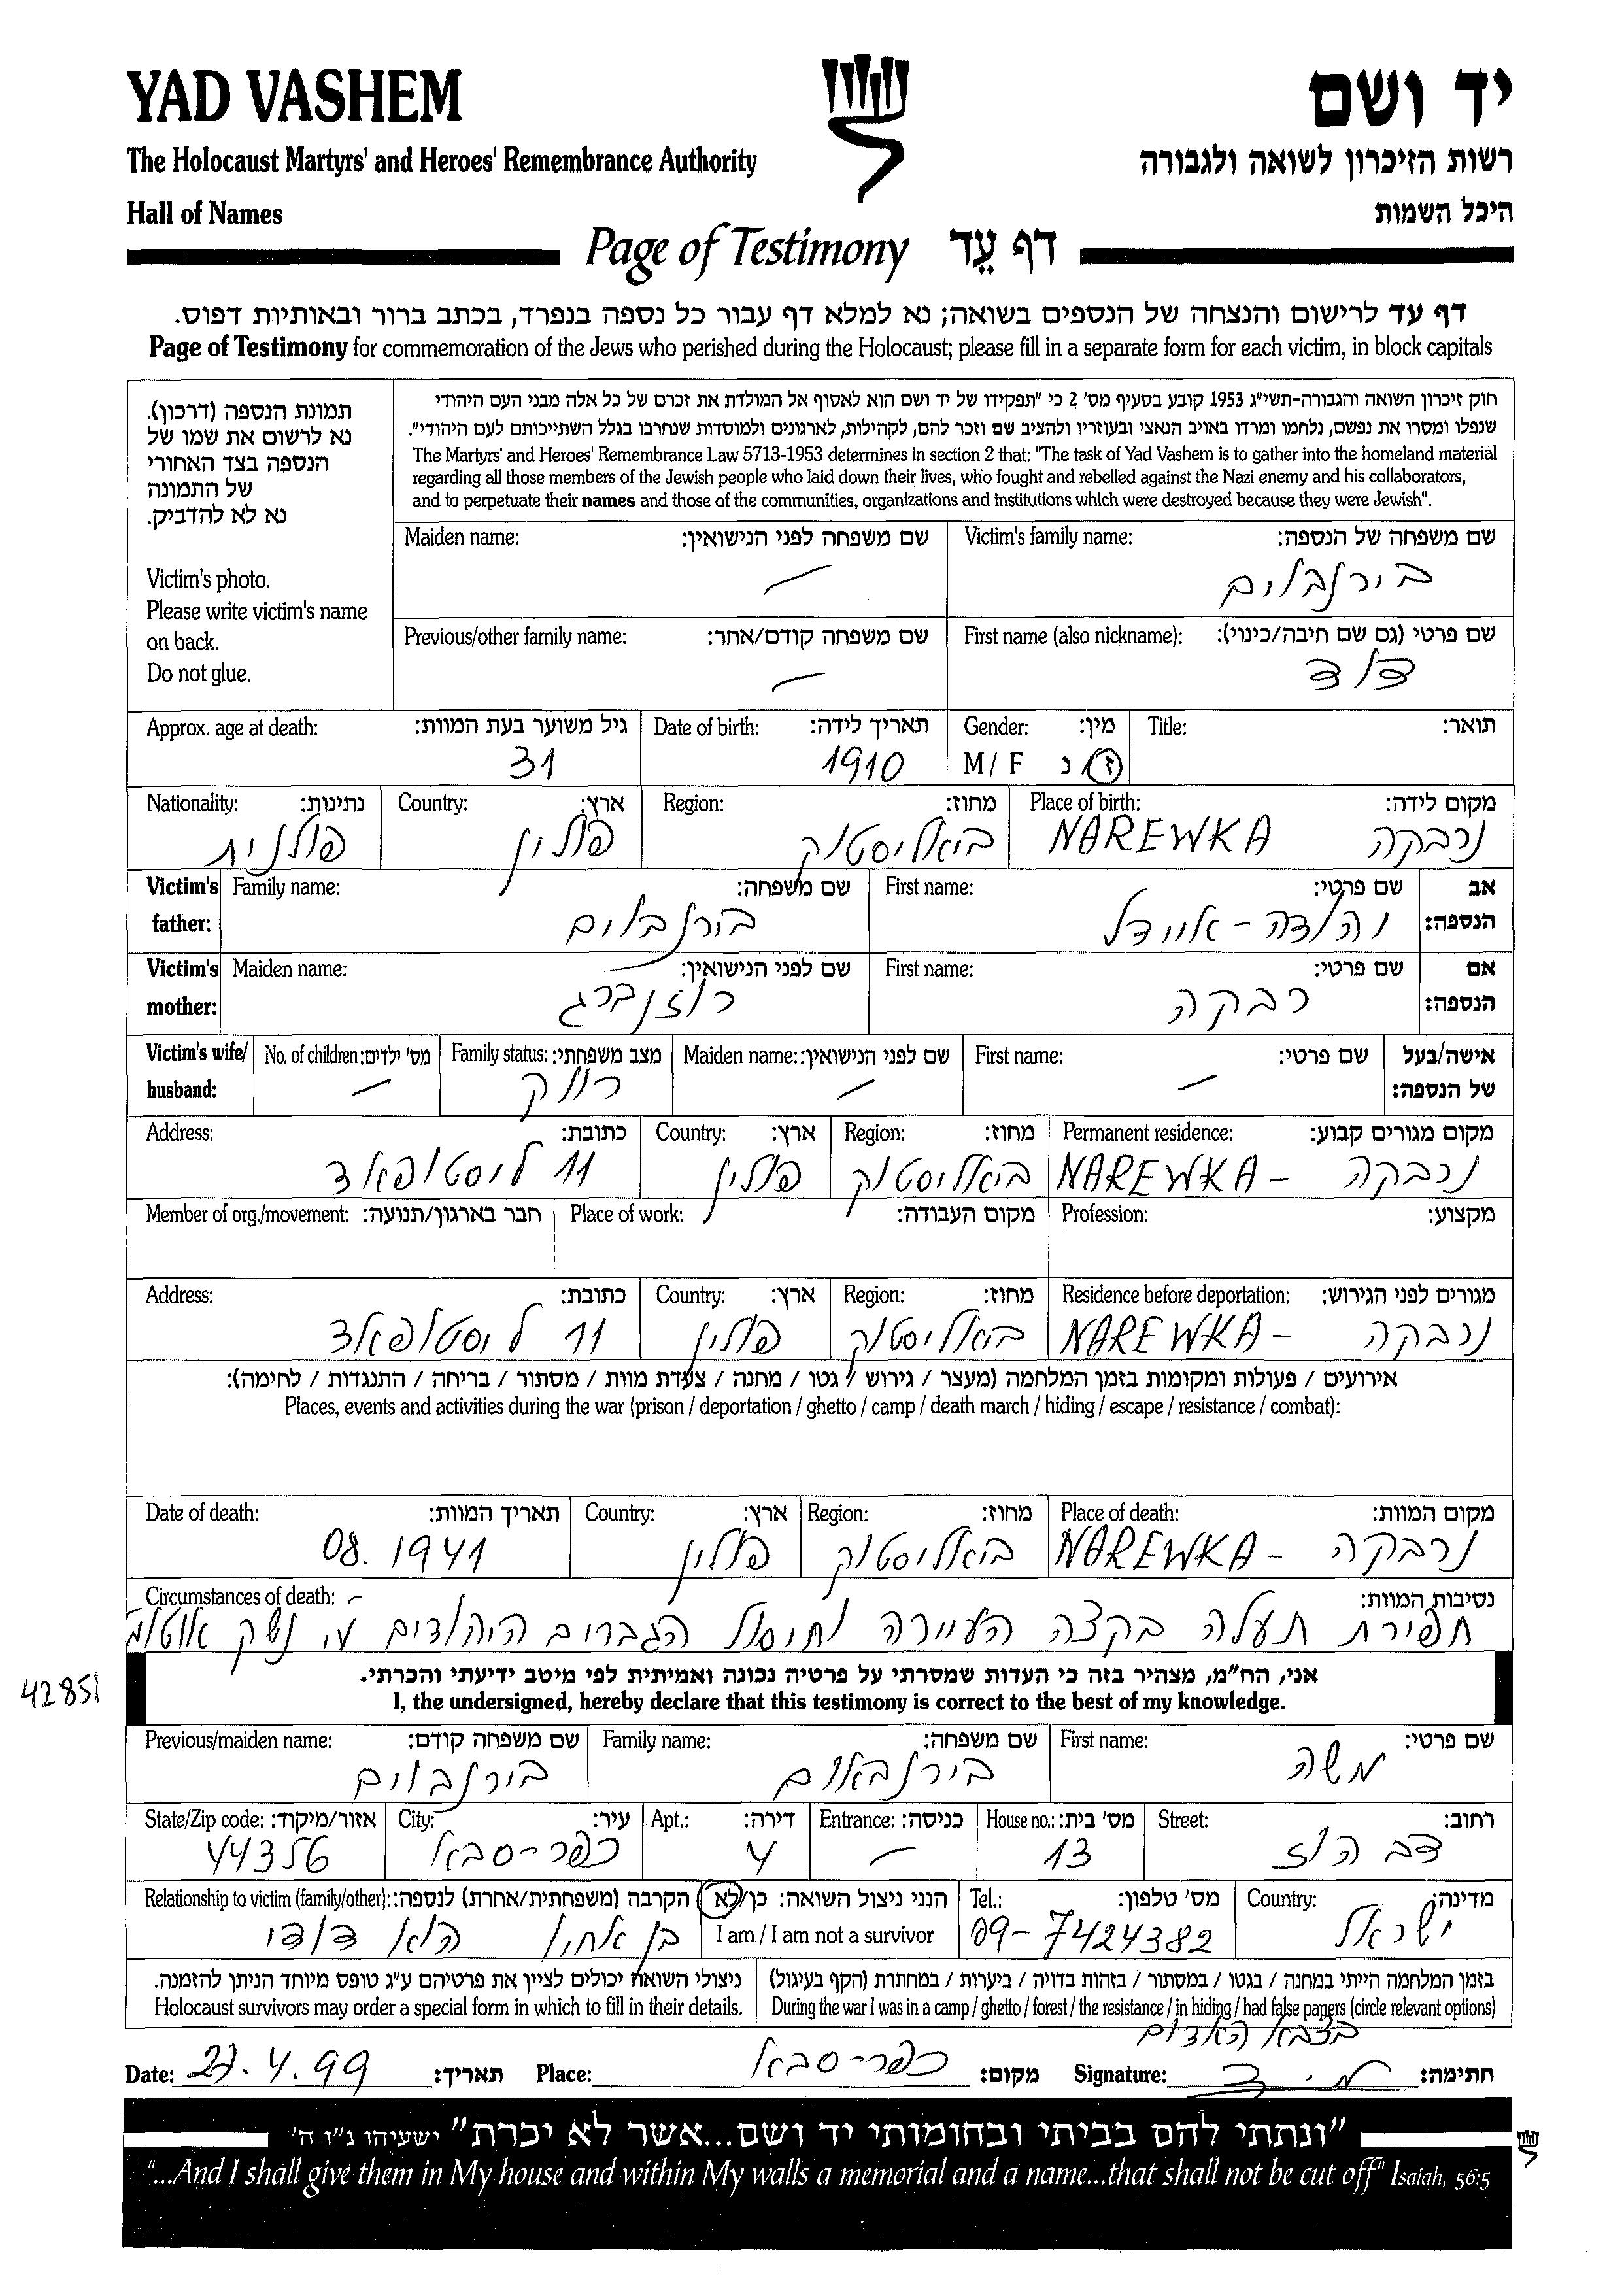 YAD VASHEM
יד ושם
The Holocaust Martyrs' and Heroes' Remembrance Authority
רשות הזיכרון לשואה ולגבורה
Hall of Names
היכל השמות
Page of Testimony דף עֵד
דף עד לרישום והנצחה של הנספים בשואה; נא למלא דף עבור כל נספה בנפרד, בכתב ברור ובאותיות דפוס.
Page of Testimony for commemoration of the Jews who perished during the Holocaust; please fill in a separate form for each victim, in block capitals
תמונת הנספה (דרכון).
נא לרשום את שמו של
הנספה בצד האחורי
של התמונה
נא לא להדביק.
Victim's photo.
Please write victim's name
on back.
Do not glue.
חוק זיכרון השואה והגבורה-תשי"ג 1953 קובע בסעיף מס' 2 כי "תפקידו של יד ושם הוא לאסוף אל המולדת את זכרם של כל אלה מבני העם היהודי
שנפלו ומסרו את נפשם, נלחמו ומרדו באויב הנאצי ובעוזריו ולהציב שם וזכר להם, לקהילות, לארגונים ולמוסדות שנחרבו בגלל השתייכותם לעם היהודי".
The Martyrs' and Heroes' Remembrance Law 5713-1953 determines in section 2 that: "The task of Yad Vashem is to gather into the homeland material
regarding all those members of the Jewish people who laid down their lives, who fought and rebelled against the Nazi enemy and his collaborators,
and to perpetuate their names and those of the communities, organizations and institutions which were destroyed because they were Jewish".
Maiden name: שם משפחה לפני הנישואין: Victim's family name: שם משפחה של הנספה:
– בירנבוים
Previous/other family name: שם משפחה קודם/אחר: First name (also nickname): שם פרטי (גם שם חיבה/כינוי):
– דוד
Approx. age at death: גיל משוער בעת המוות: Date of birth: תאריך לידה: Gender: מין: Title: תואר:
31 1910 M / F ז / נ
Nationality: נתינות: Country: ארץ: Region: מחוז: Place of birth: מקום לידה:
פולנית פולין ביאליסטוק NAREWKA נרבקה
Victim's father: Family name: שם משפחה: First name: שם פרטי: אב הנספה:
בירנבוים יהודה-איידל
Victim's mother: Maiden name: שם לפני הנישואין: First name: שם פרטי: אם הנספה:
רוזנברג רבקה
Victim's wife/ husband: No. of children: מס' ילדים: Family status: מצב משפחתי: Maiden name: שם לפני הנישואין: First name: שם פרטי: אישה/בעל של הנספה:
– רווק – –
Address: כתובת: Country: ארץ: Region: מחוז: Permanent residence: מקום מגורים קבוע:
11 ליסטופאד פולין ביאליסטוק NAREWKA – נרבקה
Member of org./movement: חבר בארגון/תנועה: Place of work: מקום העבודה: Profession: מקצוע:
Address: כתובת: Country: ארץ: Region: מחוז: Residence before deportation: מגורים לפני הגירוש:
11 ליסטופאד פולין ביאליסטוק NAREWKA – נרבקה
אירועים / פעולות ומקומות בזמן המלחמה (מעצר / גירוש / גטו / מחנה / צעדת מוות / מסתור / בריחה / התנגדות / לחימה):
Places, events and activities during the war (prison / deportation / ghetto / camp / death march / hiding / escape / resistance / combat):
Date of death: תאריך המוות: Country: ארץ: Region: מחוז: Place of death: מקום המוות:
08. 1941 פולין ביאליסטוק NAREWKA – נרבקה
Circumstances of death: נסיבות המוות:
חפירת תעלה בקצה העיירה וחיסול הגברים היהודים ע"י נשק אוטומ'
אני, הח"מ, מצהיר בזה כי העדות שמסרתי על פרטיה נכונה ואמיתית לפי מיטב ידיעתי והכרתי.
42851
I, the undersigned, hereby declare that this testimony is correct to the best of my knowledge.
Previous/maiden name: שם משפחה קודם: Family name: שם משפחה: First name: שם פרטי:
בירנבוים בירנבאום משה
State/Zip code: אזור/מיקוד: City: עיר: Apt.: דירה: Entrance: כניסה: House no.: מס' בית: Street: רחוב:
44356 כפר-סבא 4 – 13 דב הוז
Relationship to victim (family/other): הקרבה (משפחתית/אחרת) לנספה: הנני ניצול השואה: כן/לא Tel.: מס' טלפון: Country: מדינה:
בן אחיו הוא דודי I am / I am not a survivor 09-7424382 ישראל
ניצולי השואה יכולים לציין את פרטיהם ע"ג טופס מיוחד הניתן להזמנה.
Holocaust survivors may order a special form in which to fill in their details.
בזמן המלחמה הייתי במחנה / בגטו / במסתור / בזהות בדויה / ביערות / במחתרת (הקף בעיגול)
During the war I was in a camp / ghetto / forest / the resistance / in hiding / had false papers (circle relevant options)
בצבא האדום
Date: 27.4.99 תאריך: Place: כפר-סבא מקום: Signature: חתימה:
"ונתתי להם בביתי ובחומותי יד ושם...אשר לא יכרת" ישעיהו נ"ו ה'
"...And I shall give them in My house and within My walls a memorial and a name...that shall not be cut off" Isaiah, 56:5